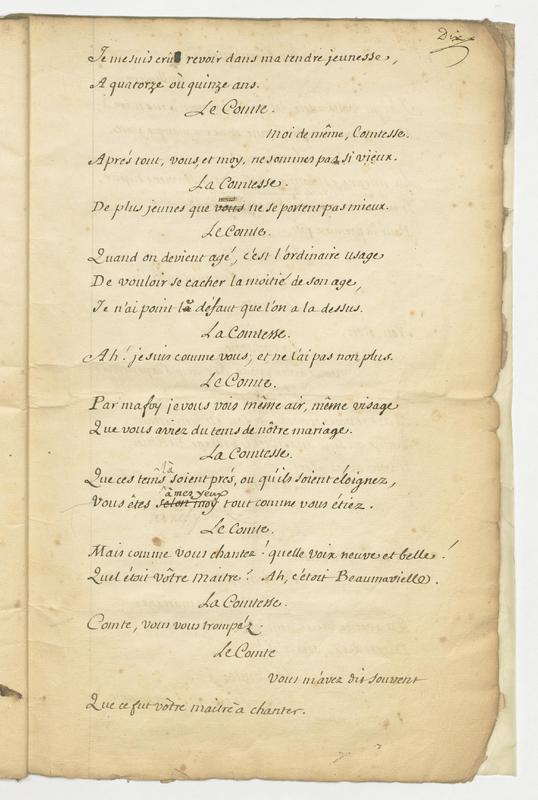 Dix
Je me suis crû revoir dans ma tendre jeunesse,
A quatorze où quinze ans.
Le Comte.
Moi de même, Comtesse.
Aprés tout, vous, et moy, ne sommes pas si vieux.
La Comtesse.
De plus jeunes que vous ne se portent pas mieux.
Le Comte.
Quand on devient agé, c'est l'ordinaire usage
De vouloir se cacher la moitié de son age,
Je n'ai point le défaut que l'on a la dessus.
La Comtesse.
Ah! je suis comme vous, et ne l'ai pas non plus.
Le Comte.
Par ma foy je vous vois même air, même visage
Que vous aviez du tems de nôtre mariage.
La Comtesse.
Que ces tems là soient prés, ou qu'ils soient éloignez,
Vous êtes selon moy à mes yeux tout comme vous étiez.
Le Comte.
Mais comme vous chantez! quelle voix neuve et belle!
Quel étoit vôtre maitre? Ah, c'étoit Beaumavielle.
La Comtesse.
Comte, vous vous trompéz.
Le Comte
Vous m'avez dit souvent
Que ce fut vôtre maitre à chanter.